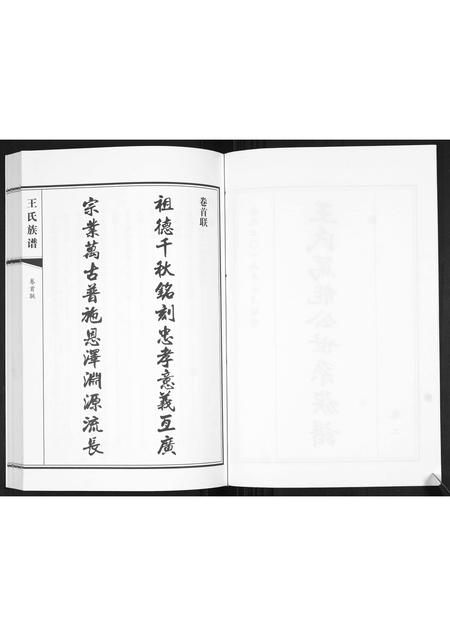 卷首联
祖德千秋銘刻忠孝意義亙廣
宗業萬古普施恩澤淵源流長
王氏族谱
卷首联